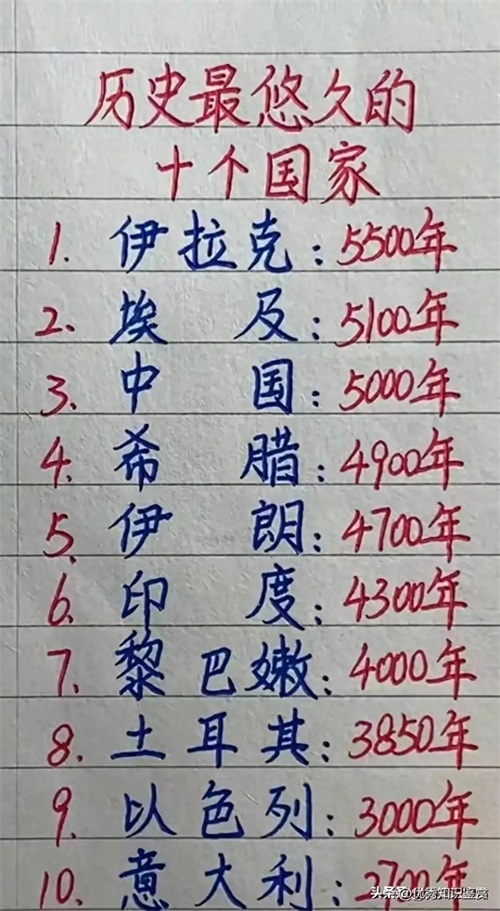 历史最悠久的
十个国家
1. 伊拉克: 5500年
2. 埃及: 5100年
3. 中国: 5000年
4. 希腊: 4900年
5. 伊朗: 4700年
6. 印度: 4300年
7. 黎巴嫩: 4000年
8. 土耳其: 3850年
9. 以色列: 3000年
10. 意大利: 2700年
头条 @优秀知识鉴赏